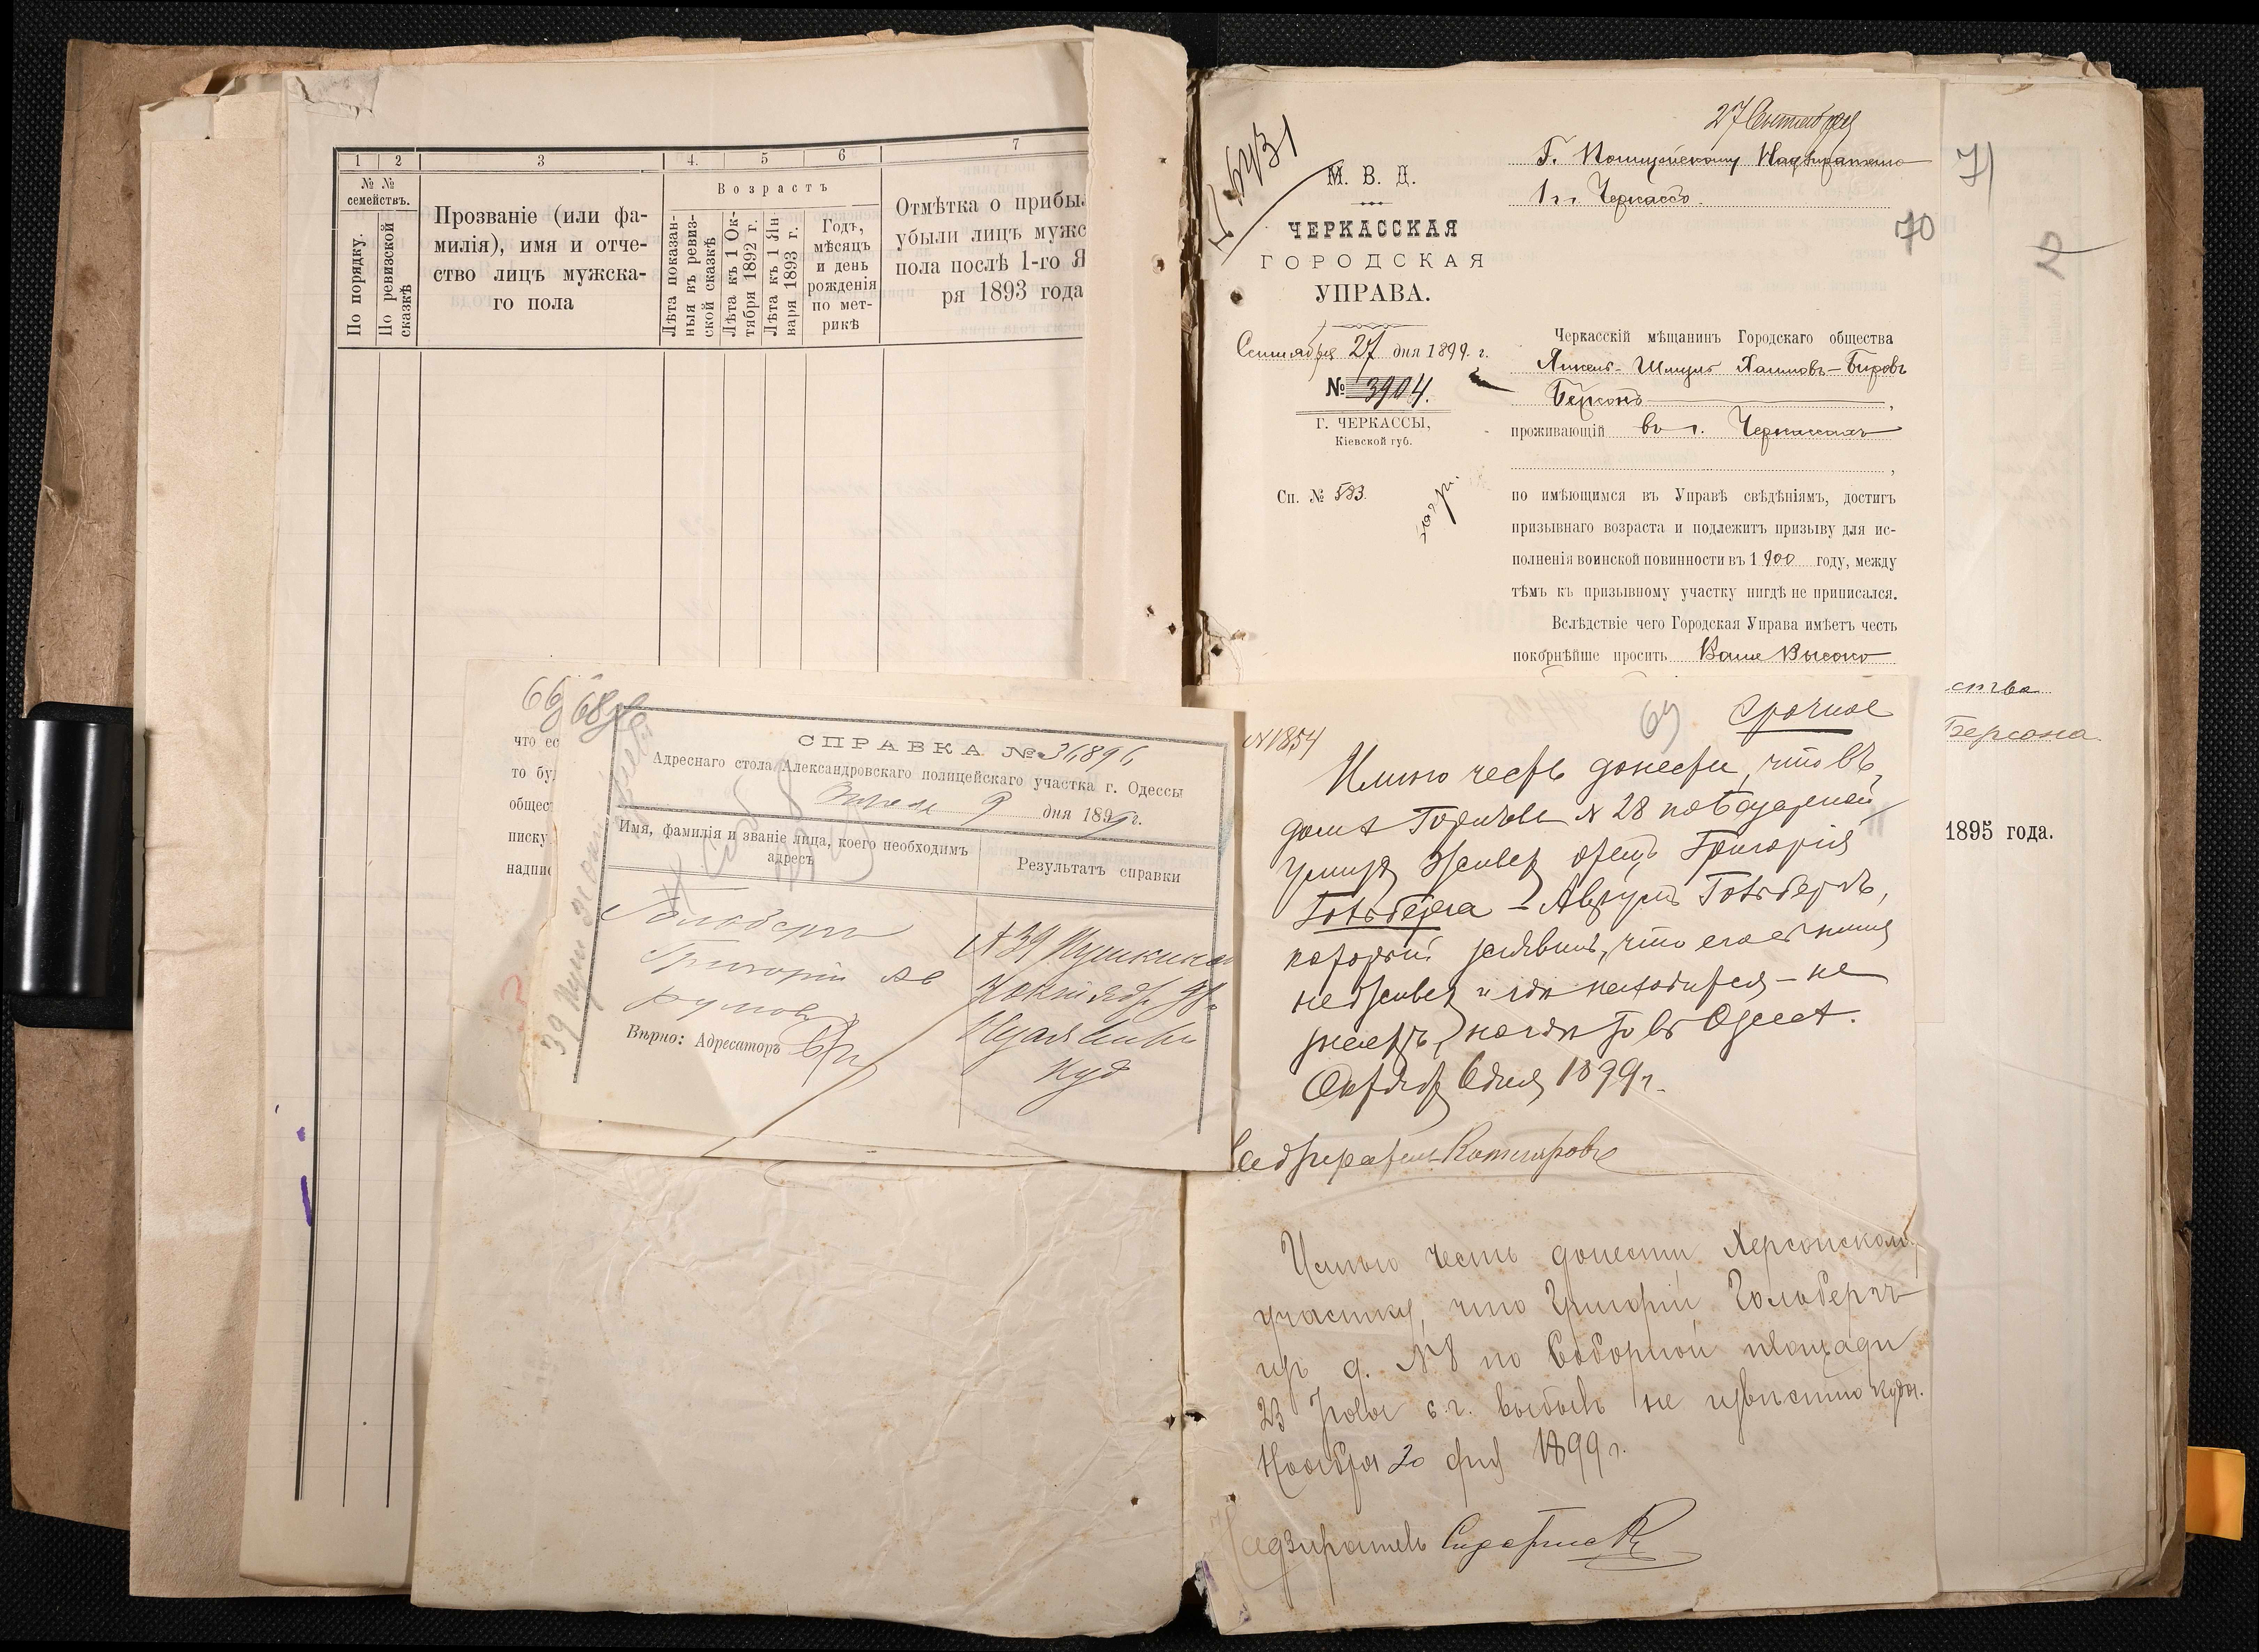 1 2 3 4. 5 6 7
№ №
семействъ.
По порядку.
По ревизской
сказкѣ
Прозваніе (или фа-
милія), имя и отче-
ство лицъ мужска-
го пола
Возрастъ
Лѣта показан-
ныя въ ревиз-
ской сказкѣ
Лѣта къ 1 Ок-
тября 1892 г.
Лѣта къ 1 Ян-
варя 1893 г.
Годъ,
мѣсяцъ
и день
рожденія
по мет-
рикѣ
Отмѣтка о прибы
убыли лицъ мужс
пола послѣ 1-го Я
ря 1893 года
66 68
что ес
то бу
общес
писку
надпи
СПРАВКА № 36896
Адреснаго стола Александровскаго полицейскаго участка г. Одессы
9 дня 1899 г.
Имя, фамилія и званіе лица, коего необходимъ
адресъ
Результатъ справки
Гольдберг
Григорій Ав
румов
Вѣрно: Адресаторъ
№ 39 Пушкинск
27 Сентября
Г. Полицейскому Надзирателю
1 г. Черкассъ.
71
70
2
М. В. Д.
ЧЕРКАССКАЯ
ГОРОДСКАЯ
УПРАВА.
Сентября 27 дня 1899 г.
№ 3904.
Г. ЧЕРКАССЫ,
Кіевской губ.
Сп. № 583.
Черкасскій мѣщанинъ Городскаго общества
Янкель-Шмуль Хаимовъ-Беровъ
Берсонъ,
проживающій въ г. Черкассахъ
по имѣющимся въ Управѣ свѣдѣніямъ, достигъ
призывнаго возраста и подлежитъ призыву для ис-
полненія воинской повинности въ 1900 году, между
тѣмъ къ призывному участку нигдѣ не приписался.
Вслѣдствіе чего Городская Управа имѣетъ честь
покорнѣйше просить Ваше Высоко
ства
Берсона
1895 года.
69 Срочное
№1854
Имѣю честь донести, что въ
домѣ № 28 по Базарной
улицѣ живетъ отецъ Григорія
Гольдберга – Аврумъ Гольдбергъ,
который заявилъ, что его сынъ
не живетъ и гдѣ находится – не
знаетъ, въ Одессѣ.
Октября 6 дня 1899 г.
Надзиратель
Имѣю честь донести Херсонскому
участку, что Григорій Гольдбергъ
изъ д. № 8 по Соборной площади
23 с.г. выбылъ не извѣстно куда.
Ноября 20 дня 1899 г.
Надзиратель